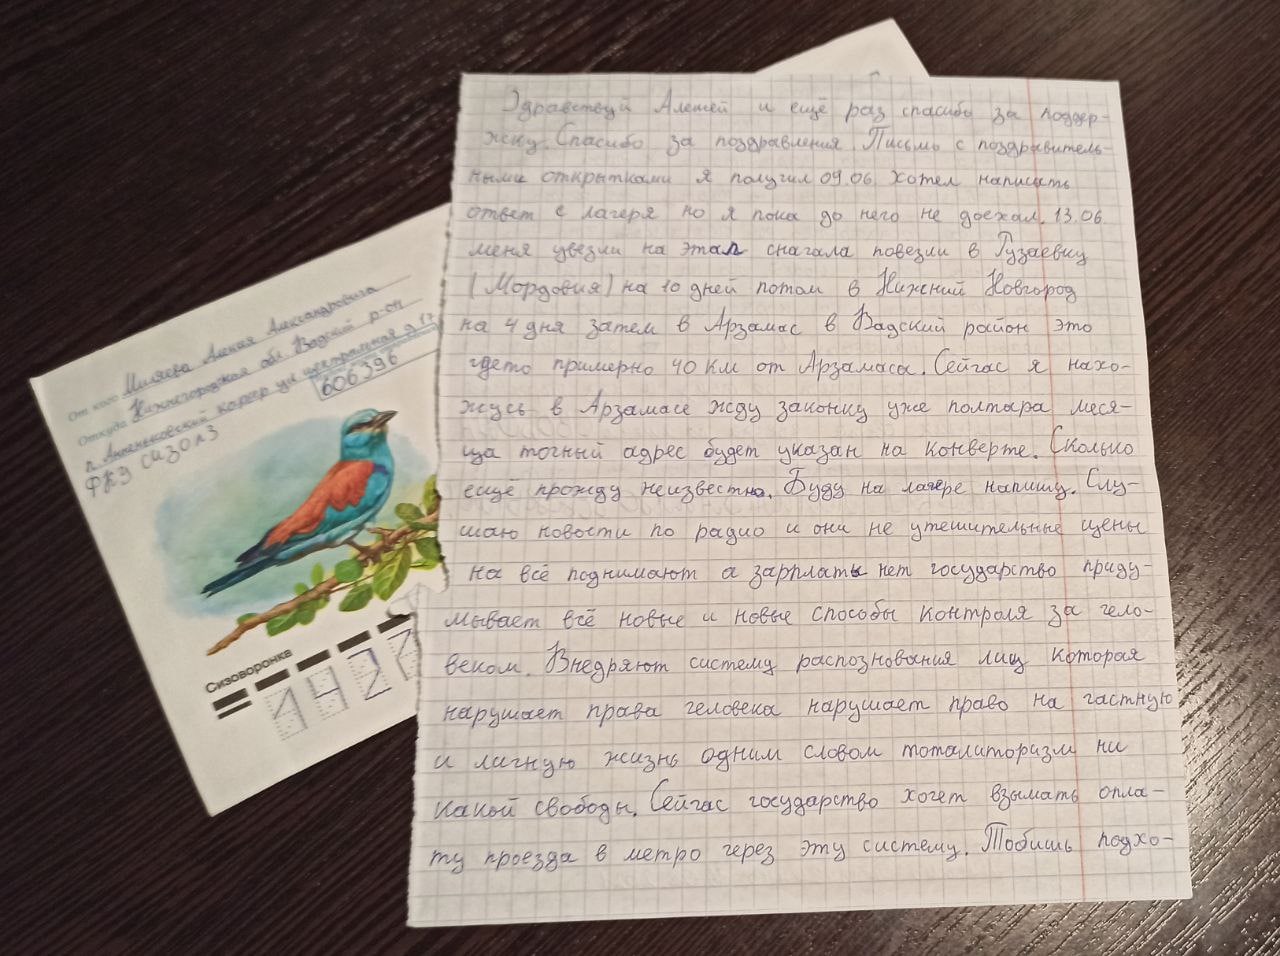 От кого Миляева Алексея Александровича
Откуда Нижегородская обл. Вадский р-он
п. Анненковский карьер ул. Центральная д. 17
606396
ФКУ СИЗО № 3
Сизоворонка
1427
Здравствуй Алексей и ещё раз спасибо за поддер-
жку. Спасибо за поздравления Письмо с поздравитель-
ными открытками я получил 09.06. хотел написать
ответ с лагеря но я пока до него не доехал. 13.06.
меня увезли на этап сначала повезли в Рузаевку
(Мордовия) на 10 дней потом в Нижний Новгород
на 4 дня затем в Арзамас в Вадский район это
гдето примерно 40 км от Арзамаса. Сейчас я нахо-
жусь в Арзамасе жду законку уже полтара меся-
ца точный адрес будет указан на конверте. Сколько
ещё прожду неизвестно. Буду на лагере напишу. Слу-
шаю новости по радио и они не утешительные цены
на всё поднимают а зарплаты нет государство приду-
мывает всё новые и новые способы контроля за чело-
веком. Внедряют систему распознования лиц которая
нарушает права человека нарушает право на частную
и личную жизнь одним словом тоталиторизм ни
какой свободы. Сейчас государство хочет взымать опла-
ту проезда в метро через эту систему. Тобишь подхо-